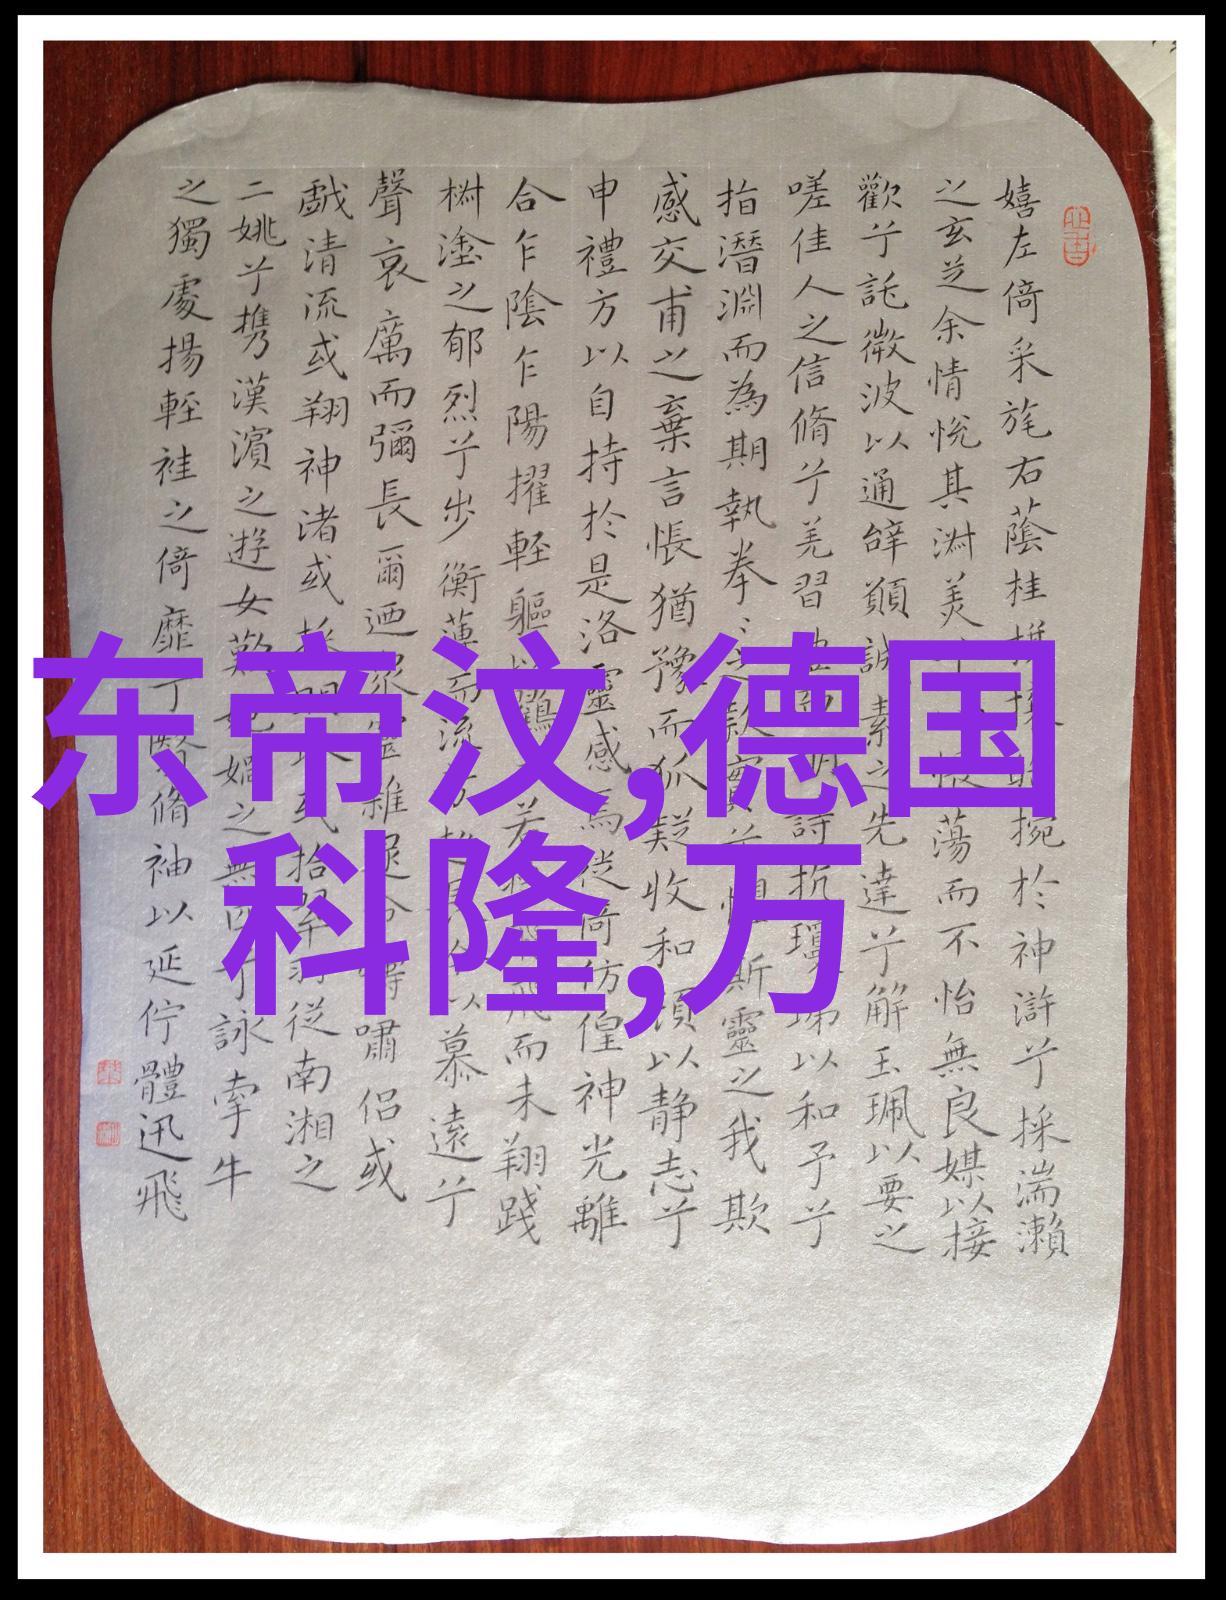 嬉左倚采旄右蔭桂於神滸兮採湍瀨
之玄芝余情悅其淑美蕩而不怡無良媒以接
歡兮託微波以通辭願誠素之先達兮解玉珮以要之
嗟佳人之信脩兮羌習詩抗瓊以和予兮
指潛淵而為期執拳斯靈之我欺
感交甫之棄言悵猶豫而狐疑收和顏以静志兮
申禮方以自持於是洛靈感焉徙倚仿偟神光離
合乍陰乍陽擢輕軀鶴若飛而未翔踐
樹塗之郁烈兮步衡薄而流以慕遠兮
聲哀厲而彌長爾迺雜嘯侶或
戲清流或翔神渚或拾翠羽從南湘之
二姚兮携漢濱之遊女歎媧之無匹兮詠牽牛
之獨處揚輕袿之倚靡兮脩袖以延佇體迅飛
东帝汶,德国
科隆,万